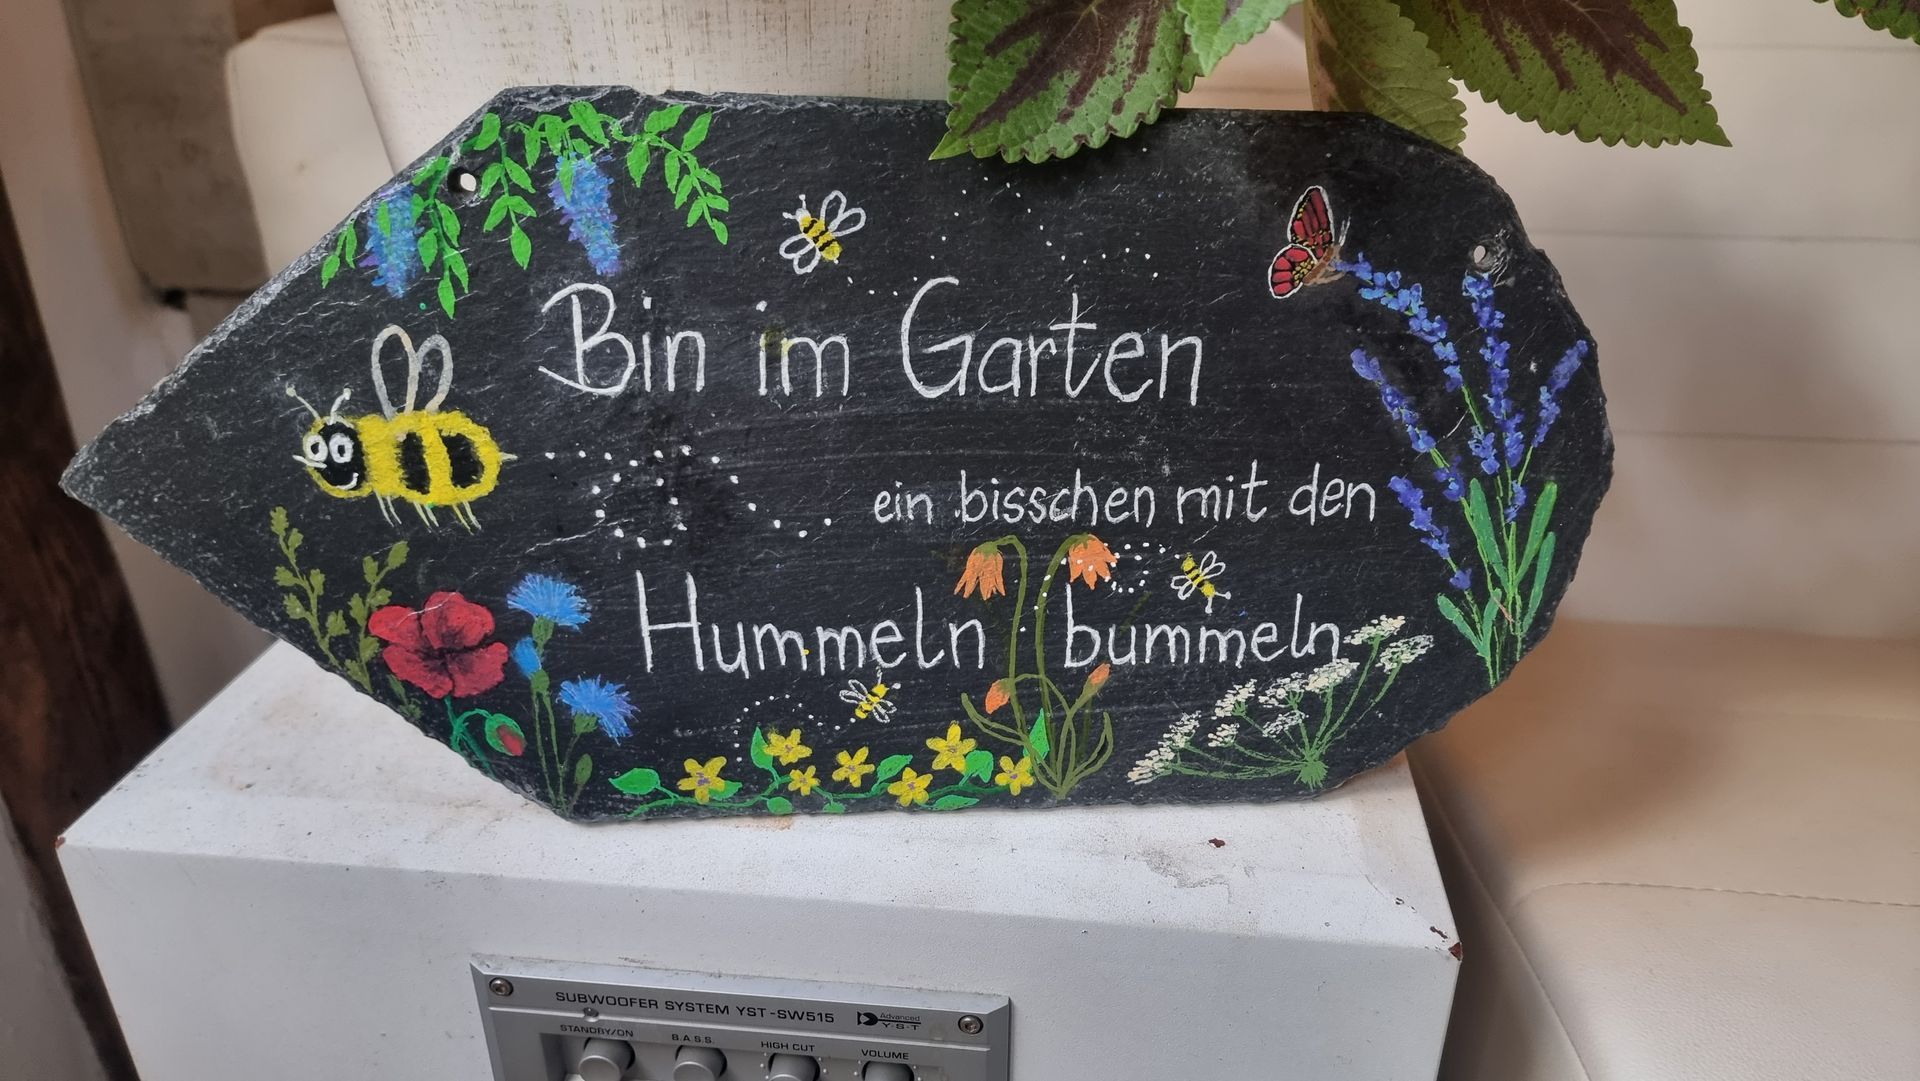 Bin im Garten
ein bisschen mit den
Hummeln bummeln
SUBWOOFER SYSTEM YST-SW515
Advanced
Y·S·T
STANDBY/ON B.A.S.S. HIGH CUT VOLUME